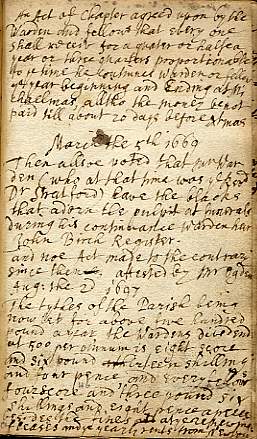 An Act of Chapter agreed upon by the
Warden and fellows that every one
shall receiv for a quater or halfe a
year or three quarters proportionable
to ye time he continues Warden or fellow
ye year beginning and Ending at Mi
chaelmas, altho the money be not
paid till about 20 days before xtmas
March the 5th 1669
Then allsoe noted that Mr War
den (who at that time was ye Revd
Dr Stratford) leave the blacks
that adorn the pulpit at funerals
during his continuance Warden hear
John Birch Register.
and noe Act made to the contrary
since then. attested by Mr
August the 2d 1697
The tythes of the Parish being
now let for above five hundred
pound a year the Wardens dividend
at 500 per annum is eight score
and six pound thirteen shillings
and four pence and every fellows
fourscore and three pound six
shillings and eight pence apiece
besides fines